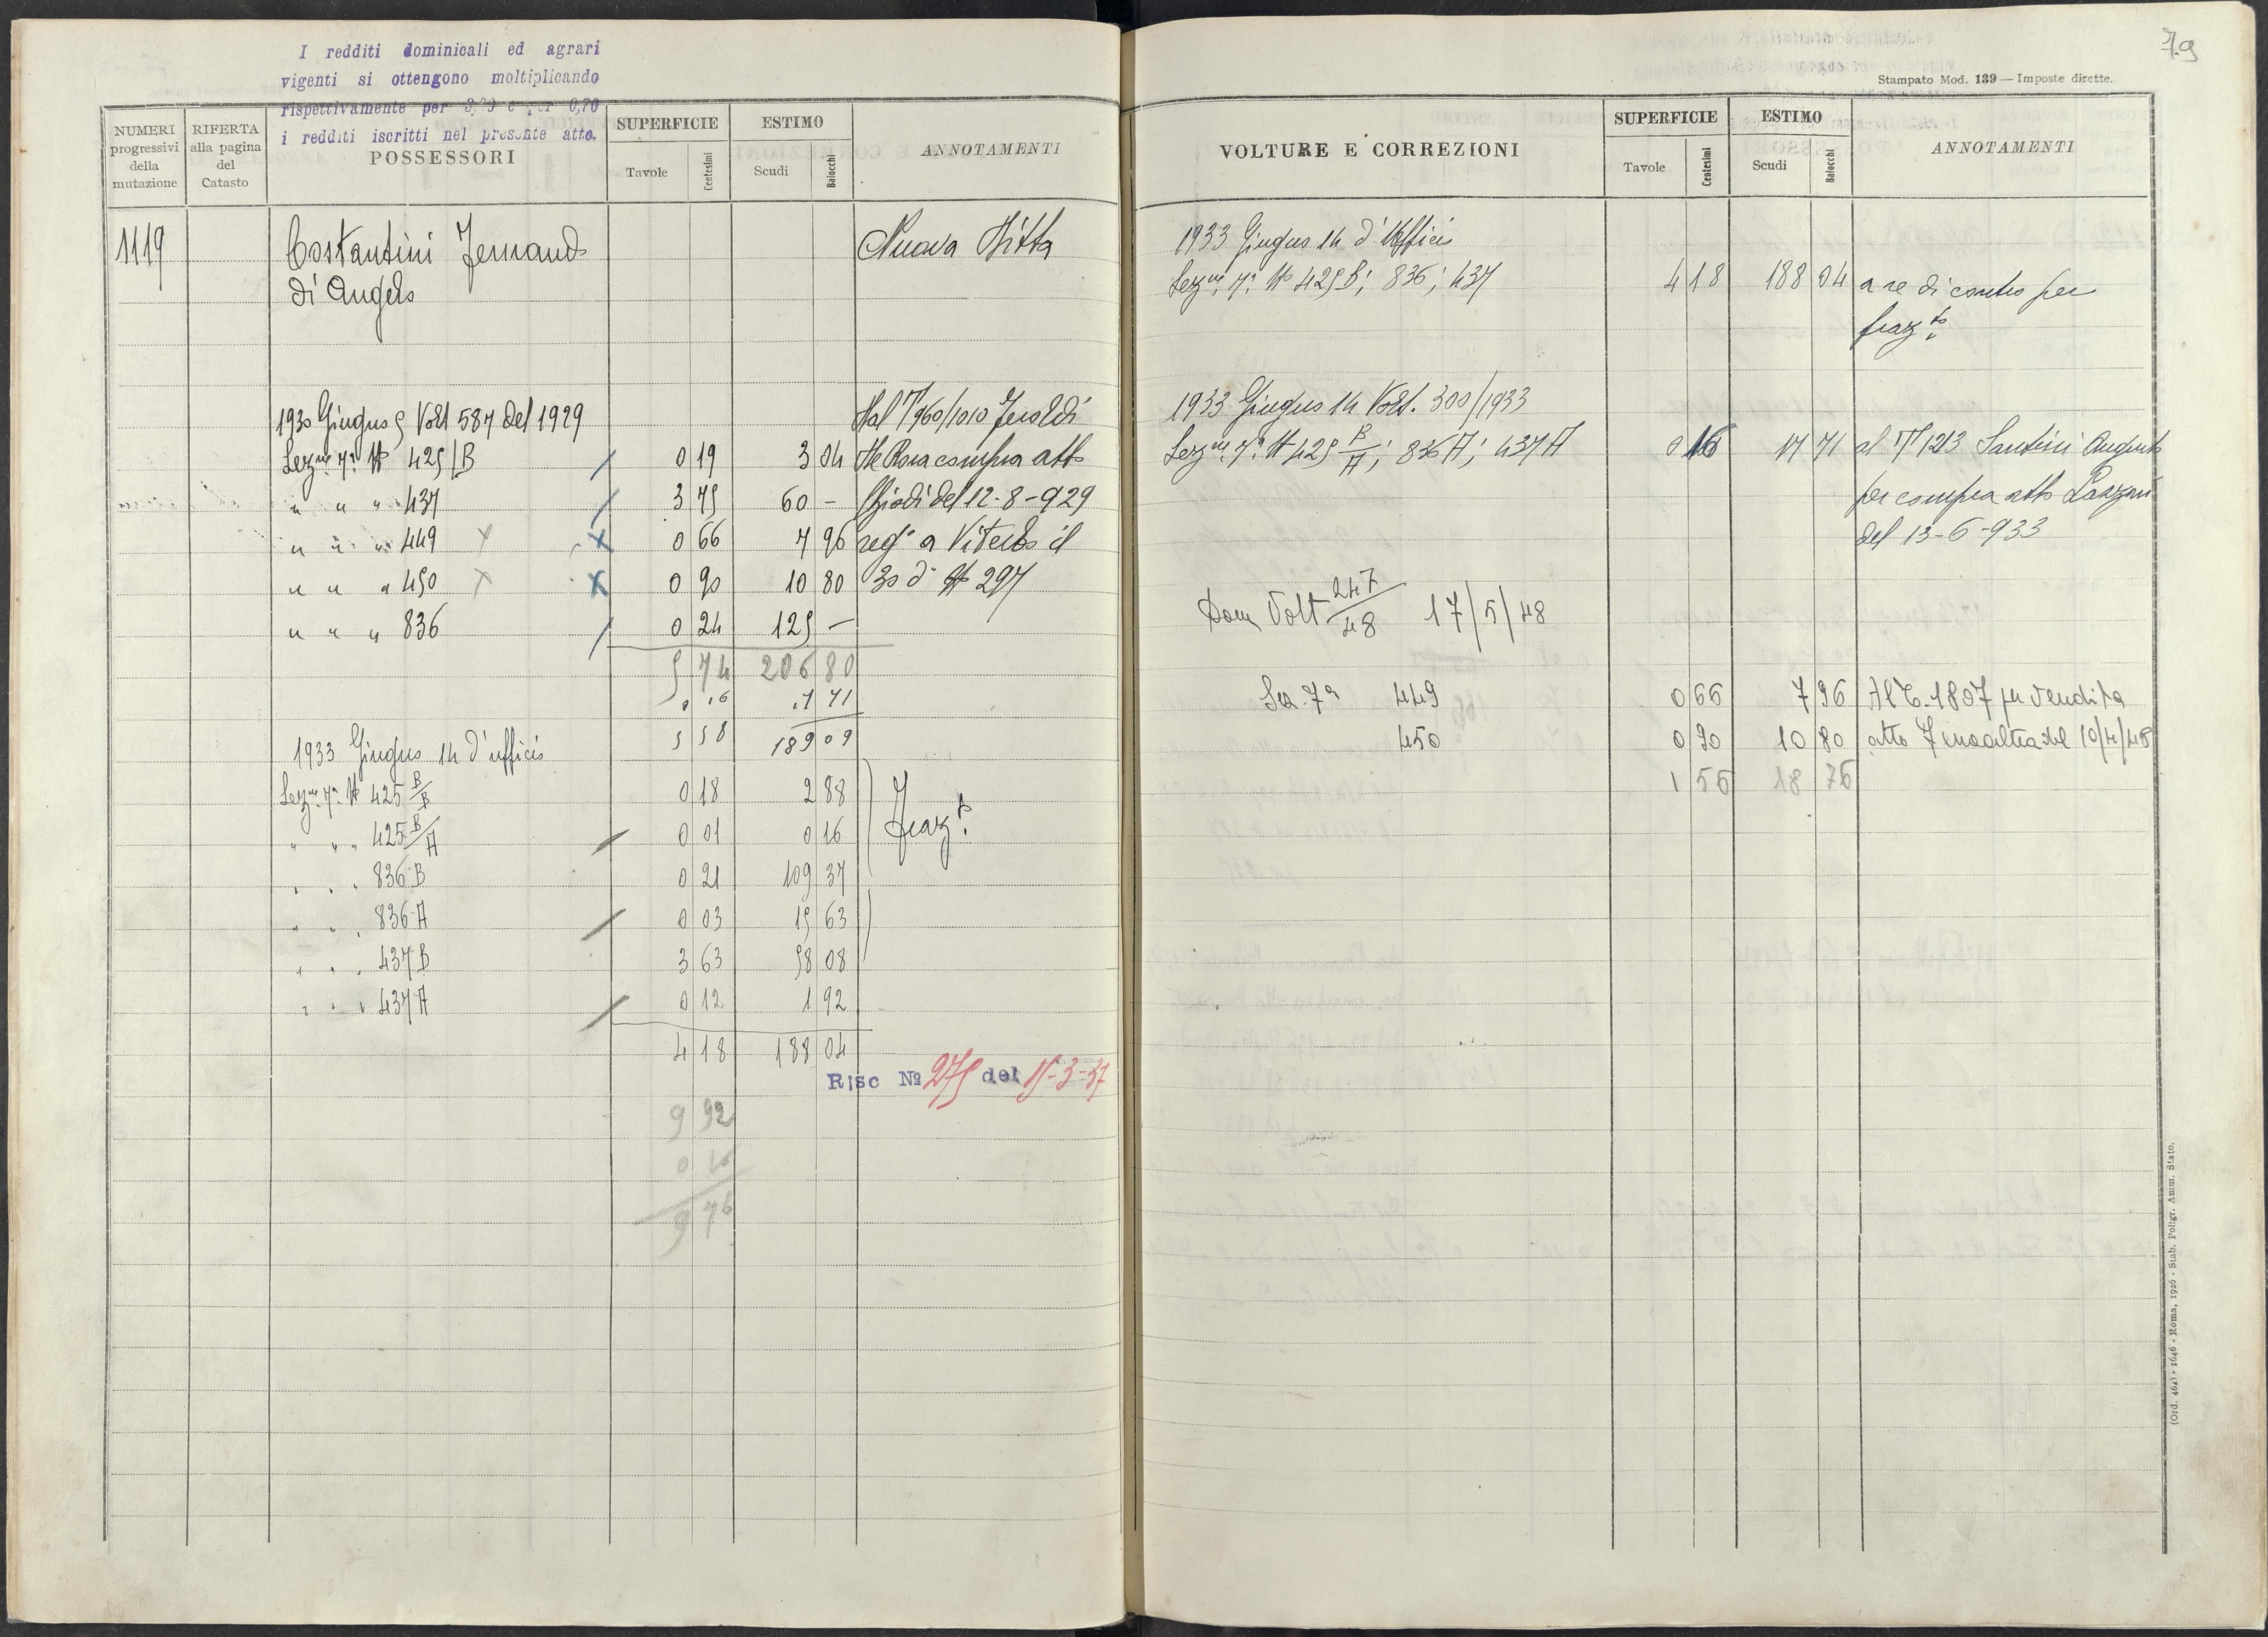 I redditi dominicali ed agrari
vigenti si ottengono moltiplicando
rispettivamente per 0,70
i redditi iscritti nel presente atto.
NUMERI progressivi della mutazione
RIFERTA alla pagina del Catasto
POSSESSORI
SUPERFICIE
Tavole Centesimi
ESTIMO
Scudi Baiocchi
ANNOTAMENTI
1119 Costantini Fernando Nuova Ditta
di Angelo
1930 Giugno 5 Volt 587 del 1929 Dal T 960/1010
Sezne 7a N° 425/B 0 19 3 04 De Rosa compra atto
" " " 437 3 75 60 — Chiodi del 12-8-929
" " " 449 X X 0 66 7 96 reg° a Viterbo il
" " " 450 X X 0 90 10 80 30 d° N° 297
" " " 836 0 24 125 —
5 74 206 80
0 16 17 71
5 58 189 09
1933 Giugno 14 d'ufficio
Sezne 7a N° 425 B/B 0 18 2 88
" " " 425 B/A 0 01 0 16 frazto
" " " 836 B 0 21 109 37
" " " 836 A 0 03 15 63
" " " 437 B 3 63 58 08
" " " 437 A 0 12 1 92
4 18 188 04
Risc No 275 del 15-3-37
9 92
0 16
9 76
79
Stampato Mod. 139 — Imposte dirette.
VOLTURE E CORREZIONI
SUPERFICIE
Tavole Centesimi
ESTIMO
Scudi Baiocchi
ANNOTAMENTI
1933 Giugno 14 d'Ufficio
Sezne 7a N° 425 B; 836; 437 4 18 188 04 a re di contro per
frazto
1933 Giugno 14 Volt. 300/1933
Sezne 7a N° 425 B/A; 836 A; 437 A 0 16 17 71 al T 1213 Santini Augusto
per compra atto
del 13-6-933
Dom Volt 247/48 17/5/48
Sez. 7a 449 0 66 7 96 Al T. 1807 per vendita
450 0 90 10 80 atto del 10/4/48
1 56 18 76
(Ord. 464) - 1646 - Roma, 1926 - Stab. Poligr. Amm. Stato.